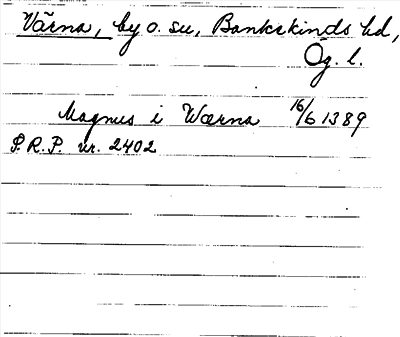 Värna, by o. su, Bankekinds hd,
Ög. l.
Magnus i Wærna 16/6 1389
P.R.P. nr. 2402